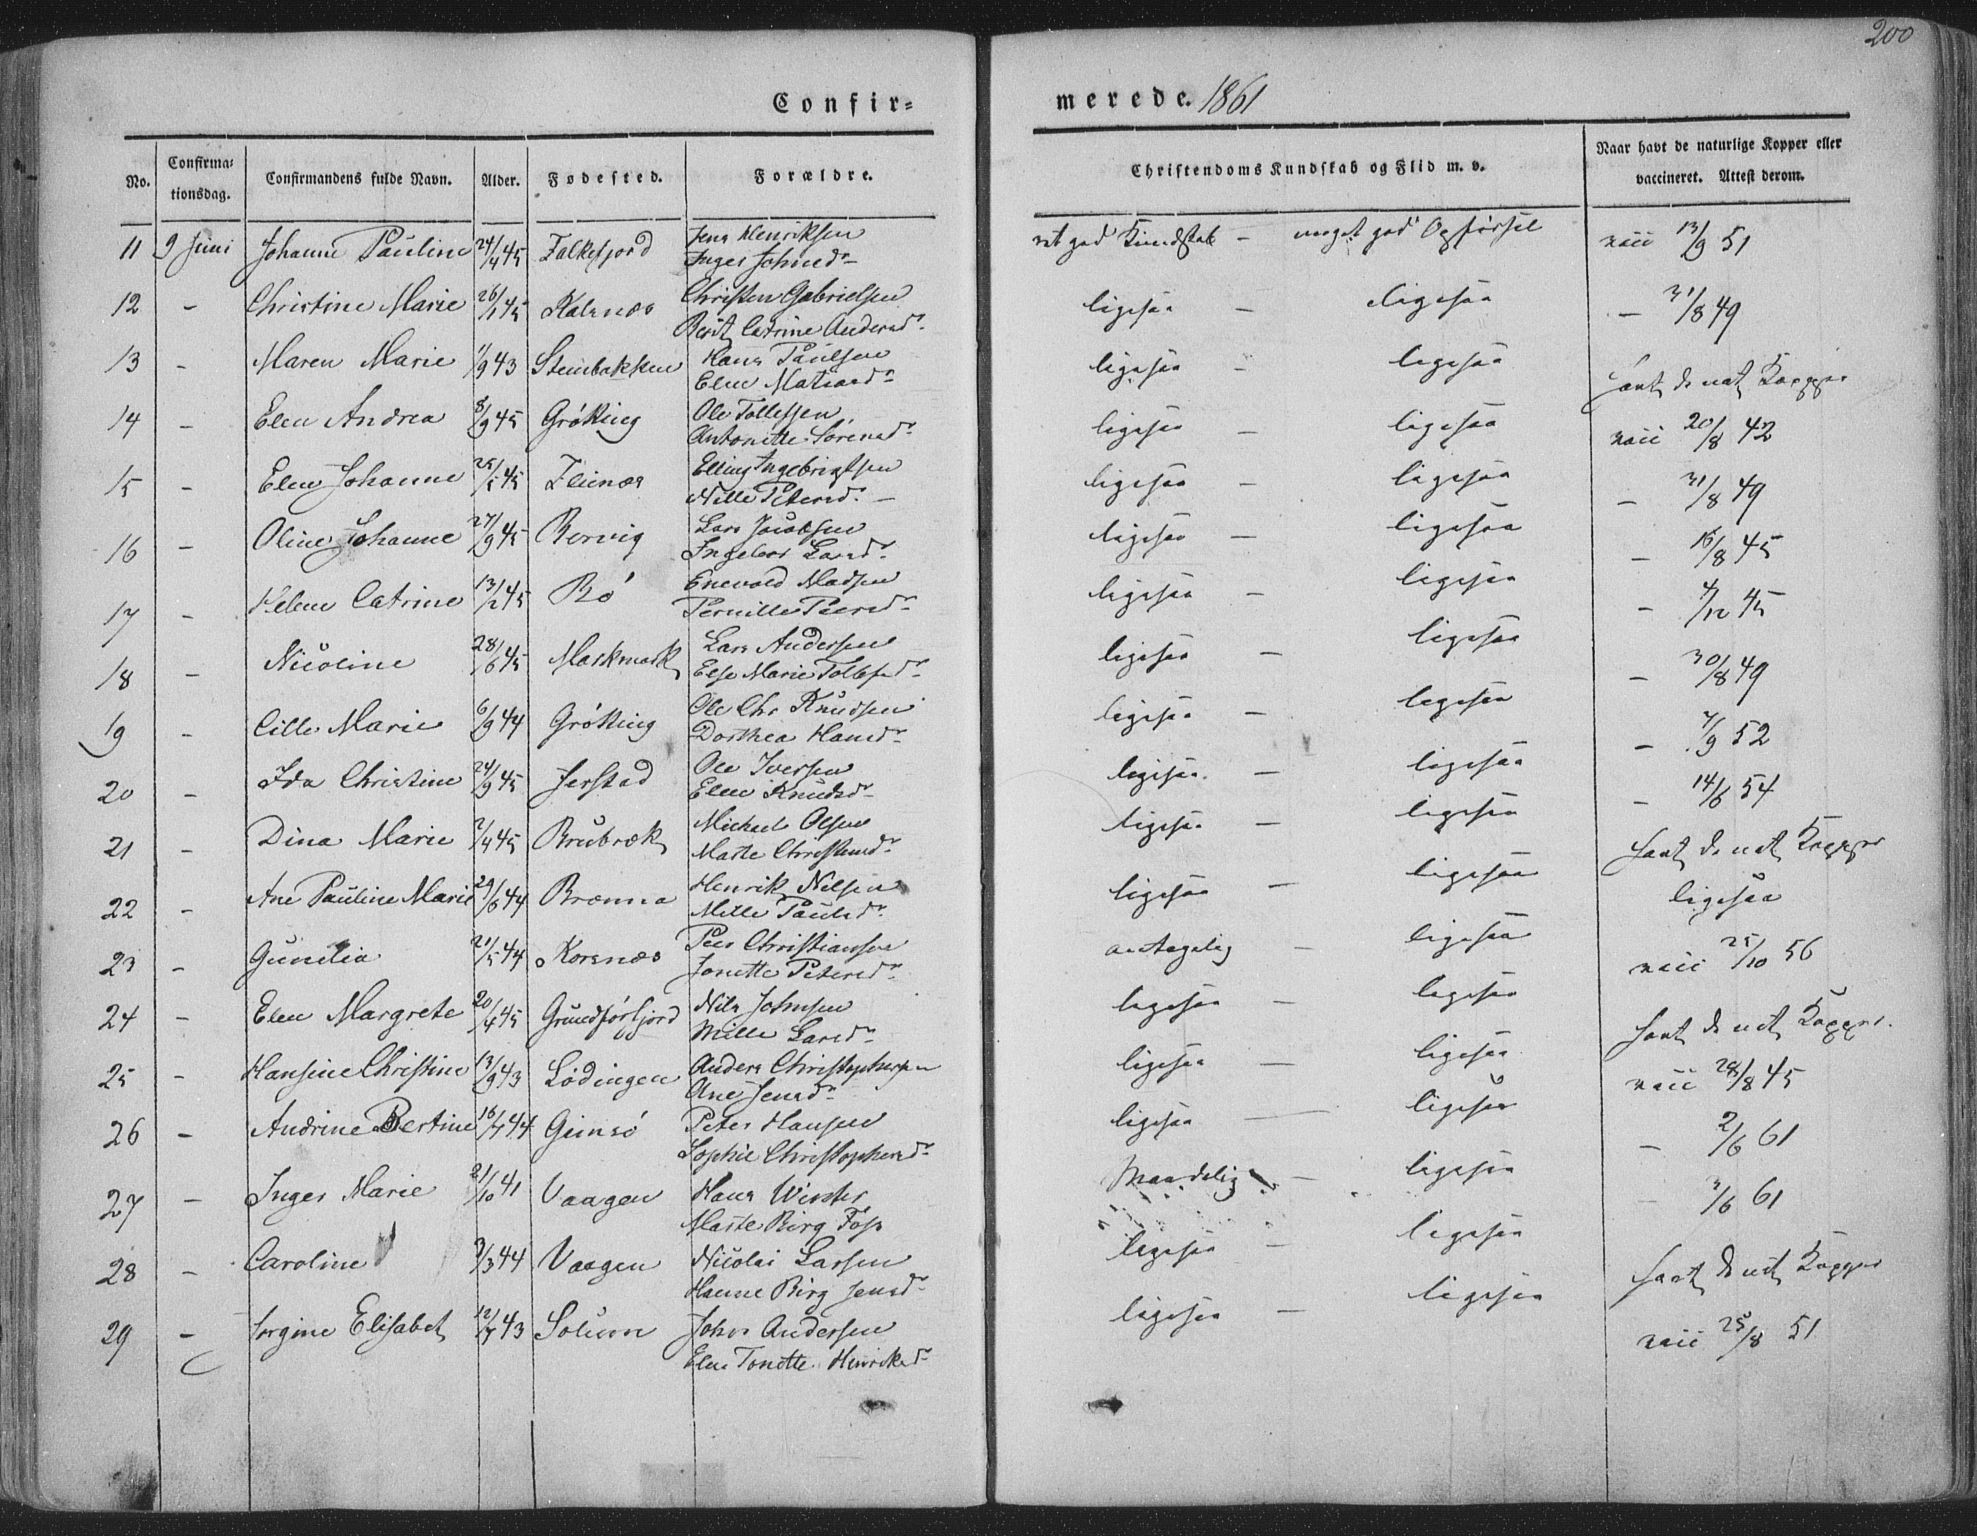 200
Confir=
merede. 1861
No.
Confirma=
tionsdag.
Confirmandens fulde Navn.
Alder.
Fødested.
Forældre.
Christendoms Kundskab og Flid m. v.
Naar havt de naturlige Kopper eller
vaccineret. Attest derom.
11 9 Juni Johanne Pauline 24/4 45 Falkefjord Jens Henriksen
Inger Johnsdr
god Kundskab – meget god Opførsel vacc 13/9 51
12 – Christine Marie 26/1 45 Kalsnæs Christen Gabrielsen
Berit Catrine Andersdr
ligesaa – ligesaa – 31/8 49
13 – Maren Marie 1/9 43 Steinbakken Hans Paulsen
Elen Matisdr
ligesaa – ligesaa havt de nat Kopper
14 – Elen Andrea 8/9 45 Grøtting Ole Tollefsen
Antonette Sørensdr
ligesaa – ligesaa vacc 20/8 42
15 – Elen Johanne 25/5 45 Fleinæs Elling Ingebrigtsen
Nille Petersdr –
ligesaa ligesaa – 31/8 49
16 – Oline Johanne 27/9 45 Rervig Lars Jacobsen
Ingebor Larsdr
ligesaa – ligesaa – 16/8 45
17 – Helene Catrine 13/12 45 Bø Enevold Madsen
Pernille Peersdr
ligesaa – ligesaa – 4/12 45
18 – Nicoline 28/6 45 Maskmark Lars Andersen
Else Marie Tollefsdr
ligesaa – ligesaa – 30/8 49
19 – Cille Marie 6/9 44 Grøtting Ole Chr Knudsen
Dorthea Hansdr
ligesaa – ligesaa – 7/9 52
20 – Ida Christine 24/9 45 Jerstad Ole Iversen
Elen Knudsdr
ligesaa – ligesaa – 14/6 54
21 – Dina Marie 7/4 45 Brubræk Michael Olsen
Marte Christensdr
ligesaa – ligesaa havt de nat Kopper
22 – Ane Pauline Marie 29/6 44 Brønna Henrik Nelsen
Mille Paulsdr
ligesaa – ligesaa ligesaa
23 – Gunelia 21/5 44 Korsnæs Peer Christiansen
Jonette Petersdr
antagelig – ligesaa vacc 25/10 56
24 – Elen Margrete 20/4 45 Grundførfjord Nils Johnsen
Mille Larsdr
ligesaa – ligesaa havt de nat Kopper
25 – Hansine Christine 13/9 43 Lødingen Anders Christophersen
Ane Jensdr
ligesaa – ligesaa vacc 28/8 45
26 – Andrine Bertine 16/7 44 Gimsø Peter Hansen
Sophie Christophersdr
ligesaa – ligesaa – 2/6 61
27 – Inger Marie 21/10 41 Vaagen Hans Winter
Marte Birg Fos
Maadelig – ligesaa – 3/6 61
28 – Caroline 3/3 44 Vaagen Nicolai Larsen
Hanne Birg Jensdr
ligesaa – ligesaa havt de nat Kopper
29 – Jorgine Elisabet 12/7 43 Solucon Johs Andersen
Elen Tonette Henriksdr
ligesaa – ligesaa vacc 25/8 51